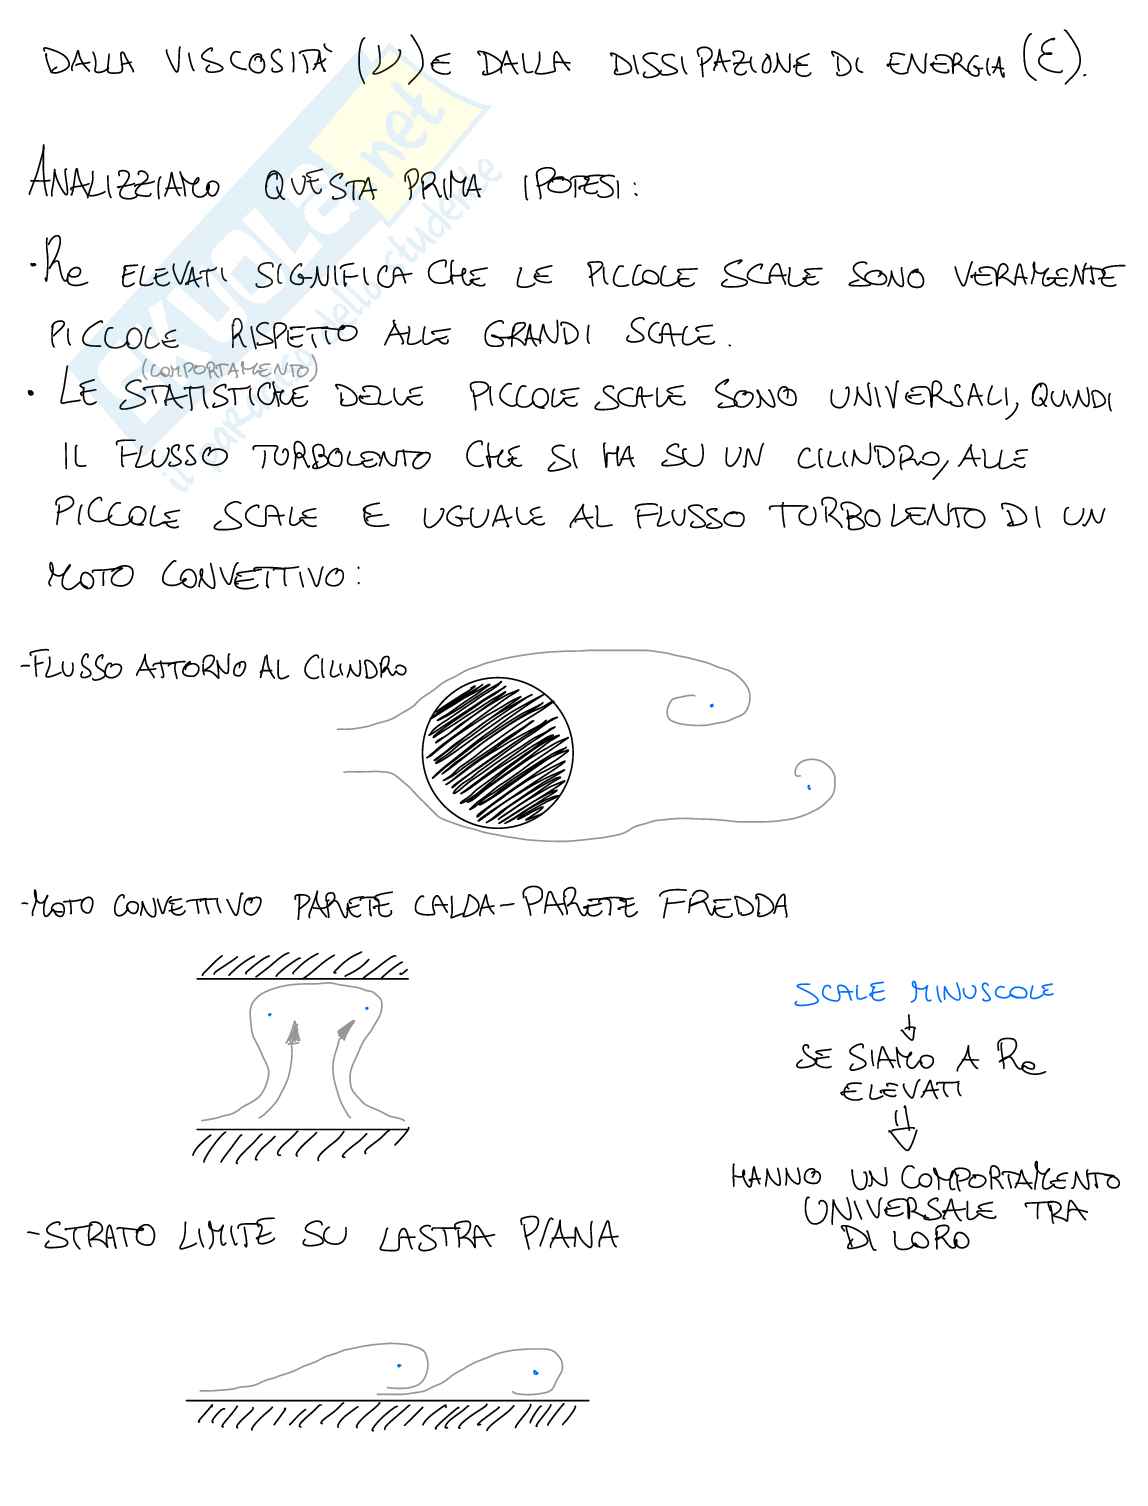 DALLA VISCOSITÀ (ν) E DALLA DISSIPAZIONE DI ENERGIA (ε).
ANALIZZIAMO QUESTA PRIMA IPOTESI:
• Re ELEVATI SIGNIFICA CHE LE PICCOLE SCALE SONO VERAMENTE
PICCOLE RISPETTO ALLE GRANDI SCALE.
(COMPORTAMENTO)
• LE STATISTICHE DELLE PICCOLE SCALE SONO UNIVERSALI, QUINDI
IL FLUSSO TURBOLENTO CHE SI HA SU UN CILINDRO, ALLE
PICCOLE SCALE E UGUALE AL FLUSSO TURBOLENTO DI UN
MOTO CONVETTIVO:
-FLUSSO ATTORNO AL CILINDRO
-MOTO CONVETTIVO PARETE CALDA-PARETE FREDDA
SCALE MINUSCOLE
↓
SE SIAMO A Re
ELEVATI
⇓
HANNO UN COMPORTAMENTO
UNIVERSALE TRA
DI LORO
-STRATO LIMITE SU LASTRA PIANA
SKUOLA.net
il paradiso dello studente